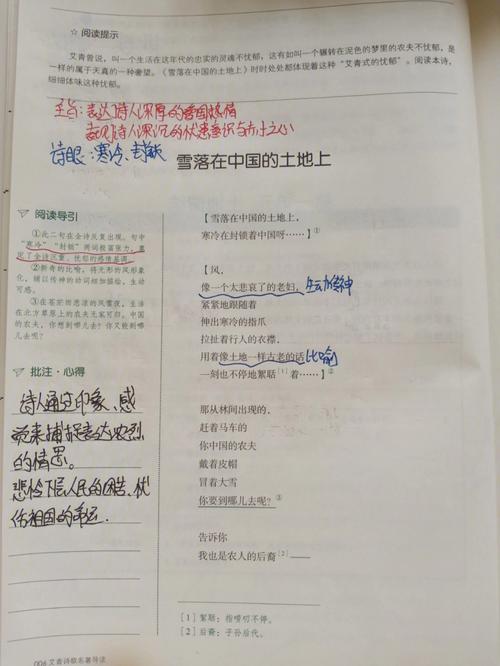 ☆ 阅读提示
艾青曾说，叫一个生活在这年代的忠实的灵魂不忧郁，这有如叫一个辗转在泥色的梦里的农夫不忧郁，是
一样的属于天真的一种奢望。《雪落在中国的土地上》时时处处都体现着这种“艾青式的忧郁”。阅读本诗，
细细体味这种忧郁。
主旨：表达诗人深厚的爱国热情
表现诗人深沉的忧患意识与赤子之心
诗眼：寒冷、封锁
雪落在中国的土地上
阅读导引
①此二句在全诗反复出现。句中
“寒冷”“封锁”两词极富张力，奠
定了全诗沉重、忧郁的感情基调。
②新奇的比喻，将无形的风形象
化，辅以传神的动词细加描绘，生动
可感。
③在茫茫而悲凉的风雪夜，生活
在北方草原上的农夫无家可归。中国
的农夫，你想到哪儿去？你又能到哪
儿去呢？
批注·心得
诗人通过印象、感
觉来捕捉表达浓烈
的情思。
悲怜下层人民的困苦、忧
伤祖国的命运.
【雪落在中国的土地上，
寒冷在封锁着中国呀……】①
【风，
像一个太悲哀了的老妇，生动传神
紧紧地跟随着
伸出寒冷的指爪
拉扯着行人的衣襟，
用着像土地一样古老的话 比喻
一刻也不停地絮聒[1]着……】②
那从林间出现的，
赶着马车的
你中国的农夫
戴着皮帽
冒着大雪
你要到哪儿去呢？③
告诉你
我也是农人的后裔[2]——
[1] 絮聒：指唠叨不停。
[2] 后裔：子孙后代。
006 艾青诗歌名著导读